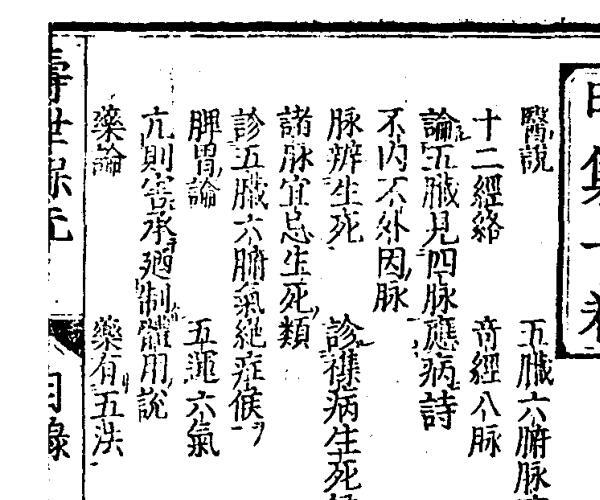 甲集一卷
醫說 五臟六腑脉
十二經絡 奇經八脉
論五臟見四脉應病詩
不內不外因脉
脉辨生死 診襍病生死
諸脉宜忌生死類
診五臟六腑氣絕症候
脾胃論 五運六氣
亢則害承廼制體用說
藥論 藥有五法
壽世保元 目錄